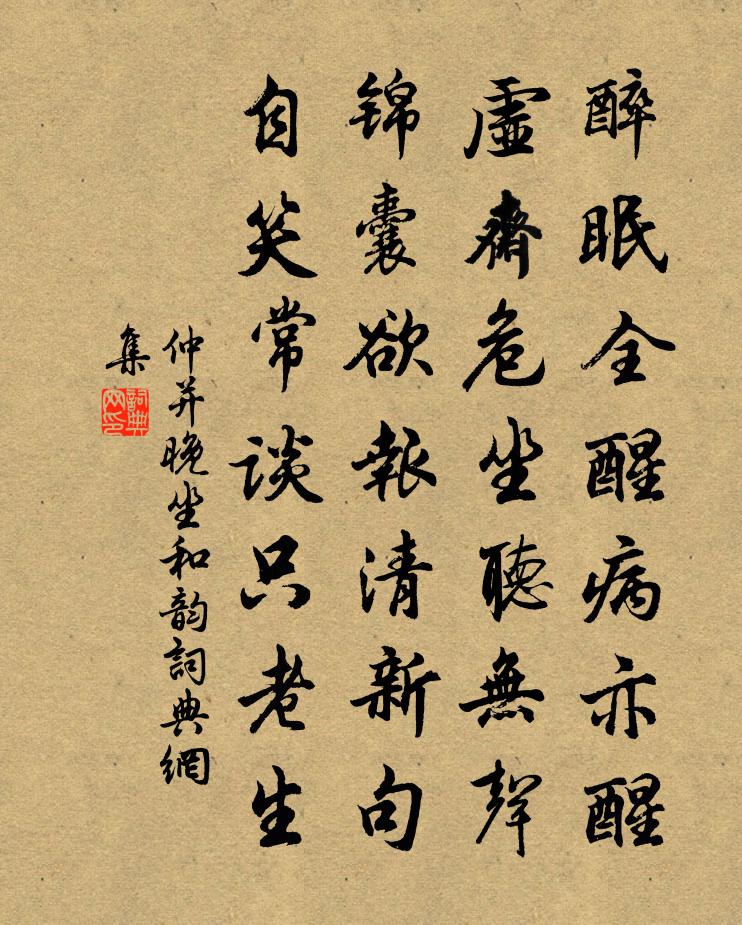 醉眠全醒病亦醒
虛齋危坐聽無聲
锦囊欲報清新句
自笑常談只老生
仲并晚坐和韵詞典網
集
詞典
网印